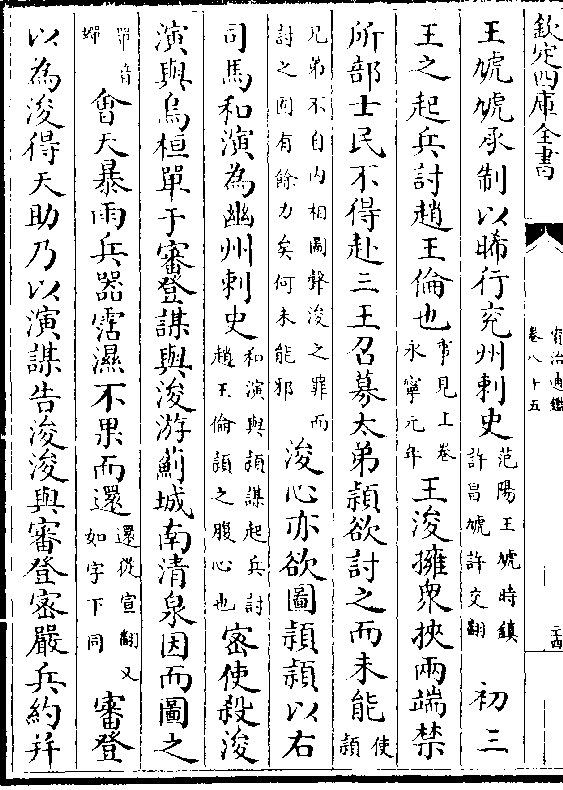 欽定四庫全書
資治通鑑
卷八十五
二十四
王虓虓承制以晞行兖州刺史范陽王虓時鎮許昌虓許交翻初三
王之起兵討趙王倫也事見上卷永寧元年王浚擁衆挾兩端禁
所部士民不得赴三王召募太弟頴欲討之而未能使頴
兄弟不自内相圖聲浚之罪而討之固有餘力矣何未能邪浚心亦欲圖頴頴以右
司馬和演為幽州刺史和演與頴謀起兵討趙王倫頴之腹心也密使殺浚
演與烏桓單于審登謀與浚游薊城南清泉因而圖之
單音蟬會天暴雨兵器霑濕不果而還還從宣翻又如字下同審登
以為浚得天助乃以演謀告浚浚與審登密嚴兵約并